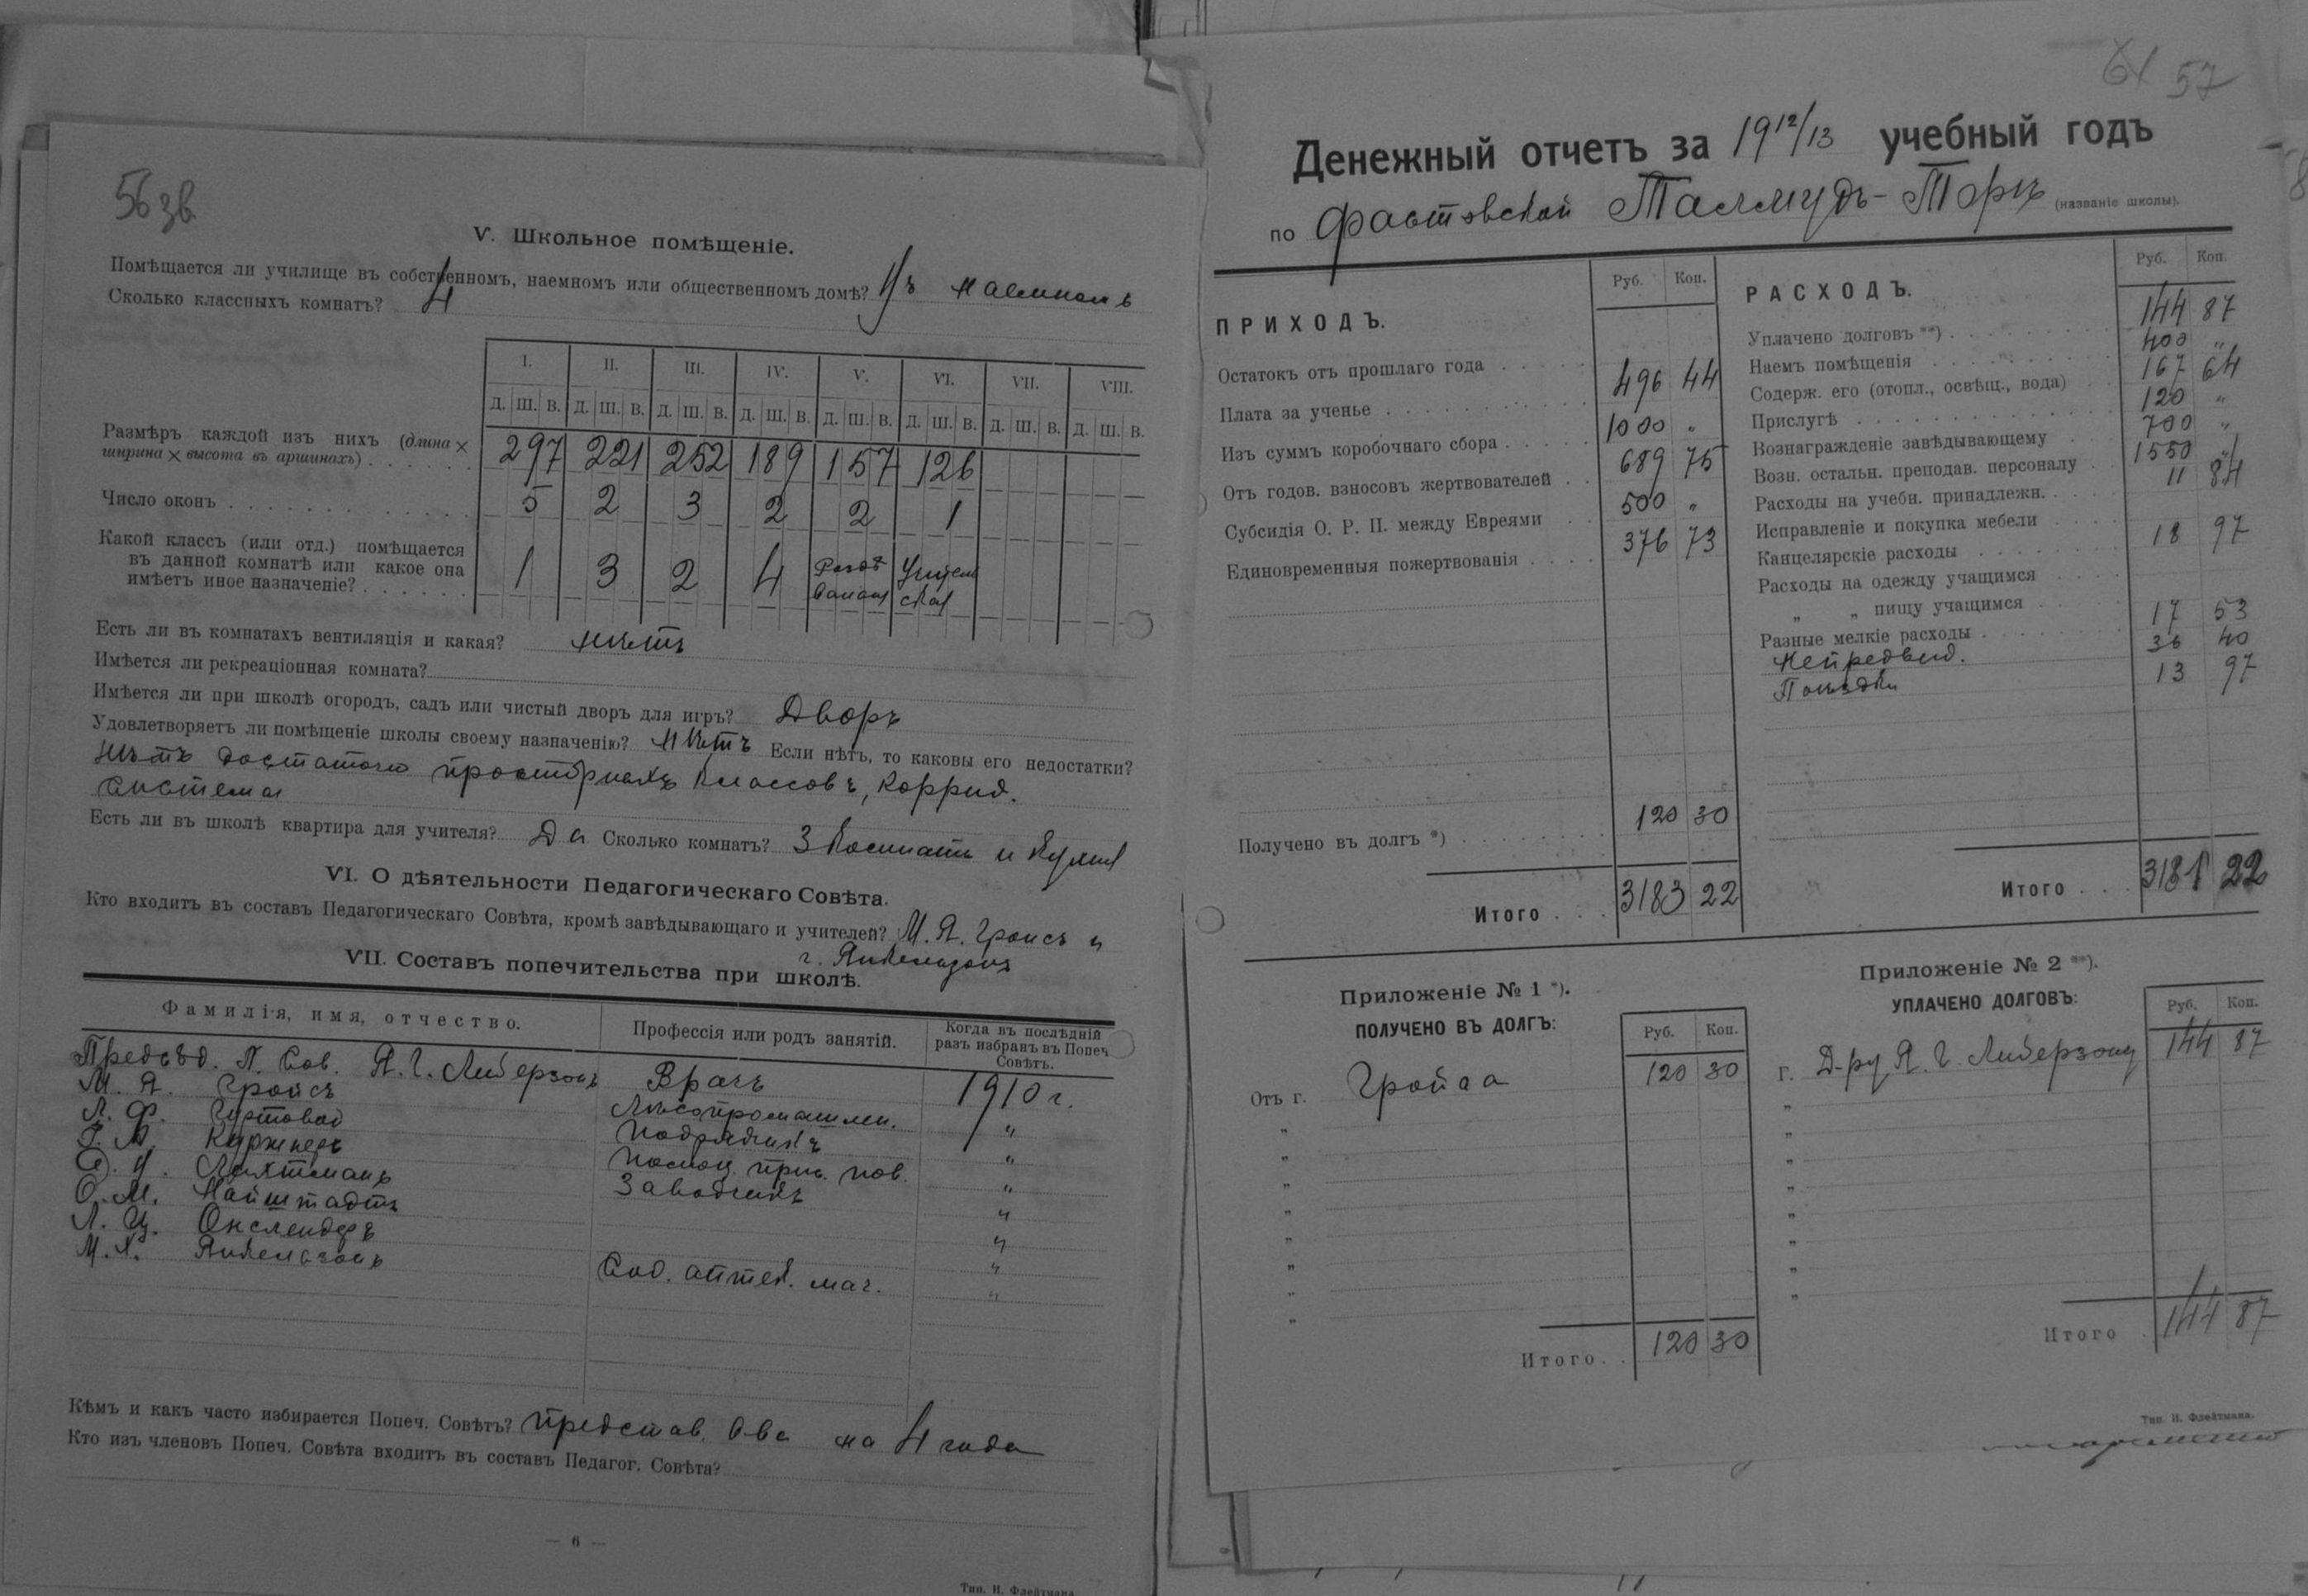 56 зв
V. Школьное помѣщеніе.
Помѣщается ли училище въ собственномъ, наемномъ или общественномъ домѣ? Въ наемномъ
Сколько классныхъ комнатъ? 4
I. II. III. IV. V. VI. VII. VIII.
Д. Ш. В. Д. Ш. В. Д. Ш. В. Д. Ш. В. Д. Ш. В. Д. Ш. В. Д. Ш. В. Д. Ш. В.
Размѣръ каждой изъ нихъ (длина × ширина × высота въ аршинахъ) 297 221 252 189 157 126
Число оконъ 5 2 3 2 2 1
Какой классъ (или отд.) помѣщается
въ данной комнатѣ или какое она
имѣетъ иное назначеніе? 1 3 2 4 Раздѣвальн Учительская
Есть ли въ комнатахъ вентиляція и какая? нѣтъ
Имѣется ли рекреаціонная комната?
Имѣется ли при школѣ огородъ, садъ или чистый дворъ для игръ? Дворъ
Удовлетворяетъ ли помѣщеніе школы своему назначенію? Нѣтъ Если нѣтъ, то каковы его недостатки?
Нѣтъ достаточно просторныхъ классовъ, коррид.
система
Есть ли въ школѣ квартира для учителя? Да Сколько комнатъ? 3 комнаты и кухня
VI. О дѣятельности Педагогическаго Совѣта.
Кто входитъ въ составъ Педагогическаго Совѣта, кромѣ завѣдывающаго и учителей? М. Я. Гройсъ и
г. Янкельзонъ
VII. Составъ попечительства при школѣ.
Фамилія, имя, отчество. Профессія или родъ занятій. Когда въ послѣдній разъ избранъ въ Попеч. Совѣтъ.
Предсѣд. П. Сов. Я. Г. Либерзонъ Врачъ 1910 г.
М. Я. Гройсъ Лѣсопромышлен. "
Л. Ф. Гуртовой Подрядчикъ "
Куржнеръ помощ. прис. пов. "
Лихтманъ Заводчикъ "
О. М. Найштадтъ "
Л. Ц. Окслендеръ "
М. Янкельзонъ Сод. аптек. маг. "
Кѣмъ и какъ часто избирается Попеч. Совѣтъ? Представ. О-ва на 4 года
Кто изъ членовъ Попеч. Совѣта входитъ въ составъ Педагог. Совѣта?
— 6 —
Тип. И. Флейтмана.
61 57
Денежный отчетъ за 1912/13 учебный годъ
по Фастовской Талмудъ-Торѣ (названіе школы).
ПРИХОДЪ. Руб. Коп.
Остатокъ отъ прошлаго года
Плата за ученье 496 44
Изъ суммъ коробочнаго сбора 1000 "
Отъ годов. взносовъ жертвователей 689 75
Субсидія О. Р. П. между Евреями 500 "
Единовременныя пожертвованія 376 73
Получено въ долгъ *) 120 30
Итого 3183 22
РАСХОДЪ. Руб. Коп.
Уплачено долговъ **) 144 87
Наемъ помѣщенія 400 "
Содерж. его (отопл., освѣщ., вода) 167 64
Прислугѣ 120 "
Вознагражденіе завѣдывающему 700 "
Возн. остальн. преподав. персоналу 1550 "
Расходы на учебн. принадлежн. 11 84
Исправленіе и покупка мебели
Канцелярскіе расходы 18 97
Расходы на одежду учащимся
" " пищу учащимся
Разные мелкіе расходы 17 53
Непредвид. 36 40
Поѣздки 13 97
Итого 3181 22
Приложеніе № 1 *).
ПОЛУЧЕНО ВЪ ДОЛГЪ: Руб. Коп.
Отъ г. Гройса 120 30
"
"
"
"
"
"
"
"
Итого 120 30
Приложеніе № 2 **).
УПЛАЧЕНО ДОЛГОВЪ: Руб. Коп.
г. Д-ру Я. Г. Либерзону 144 87
"
"
"
"
"
"
"
"
Итого 144 87
Тип. И. Флейтмана.